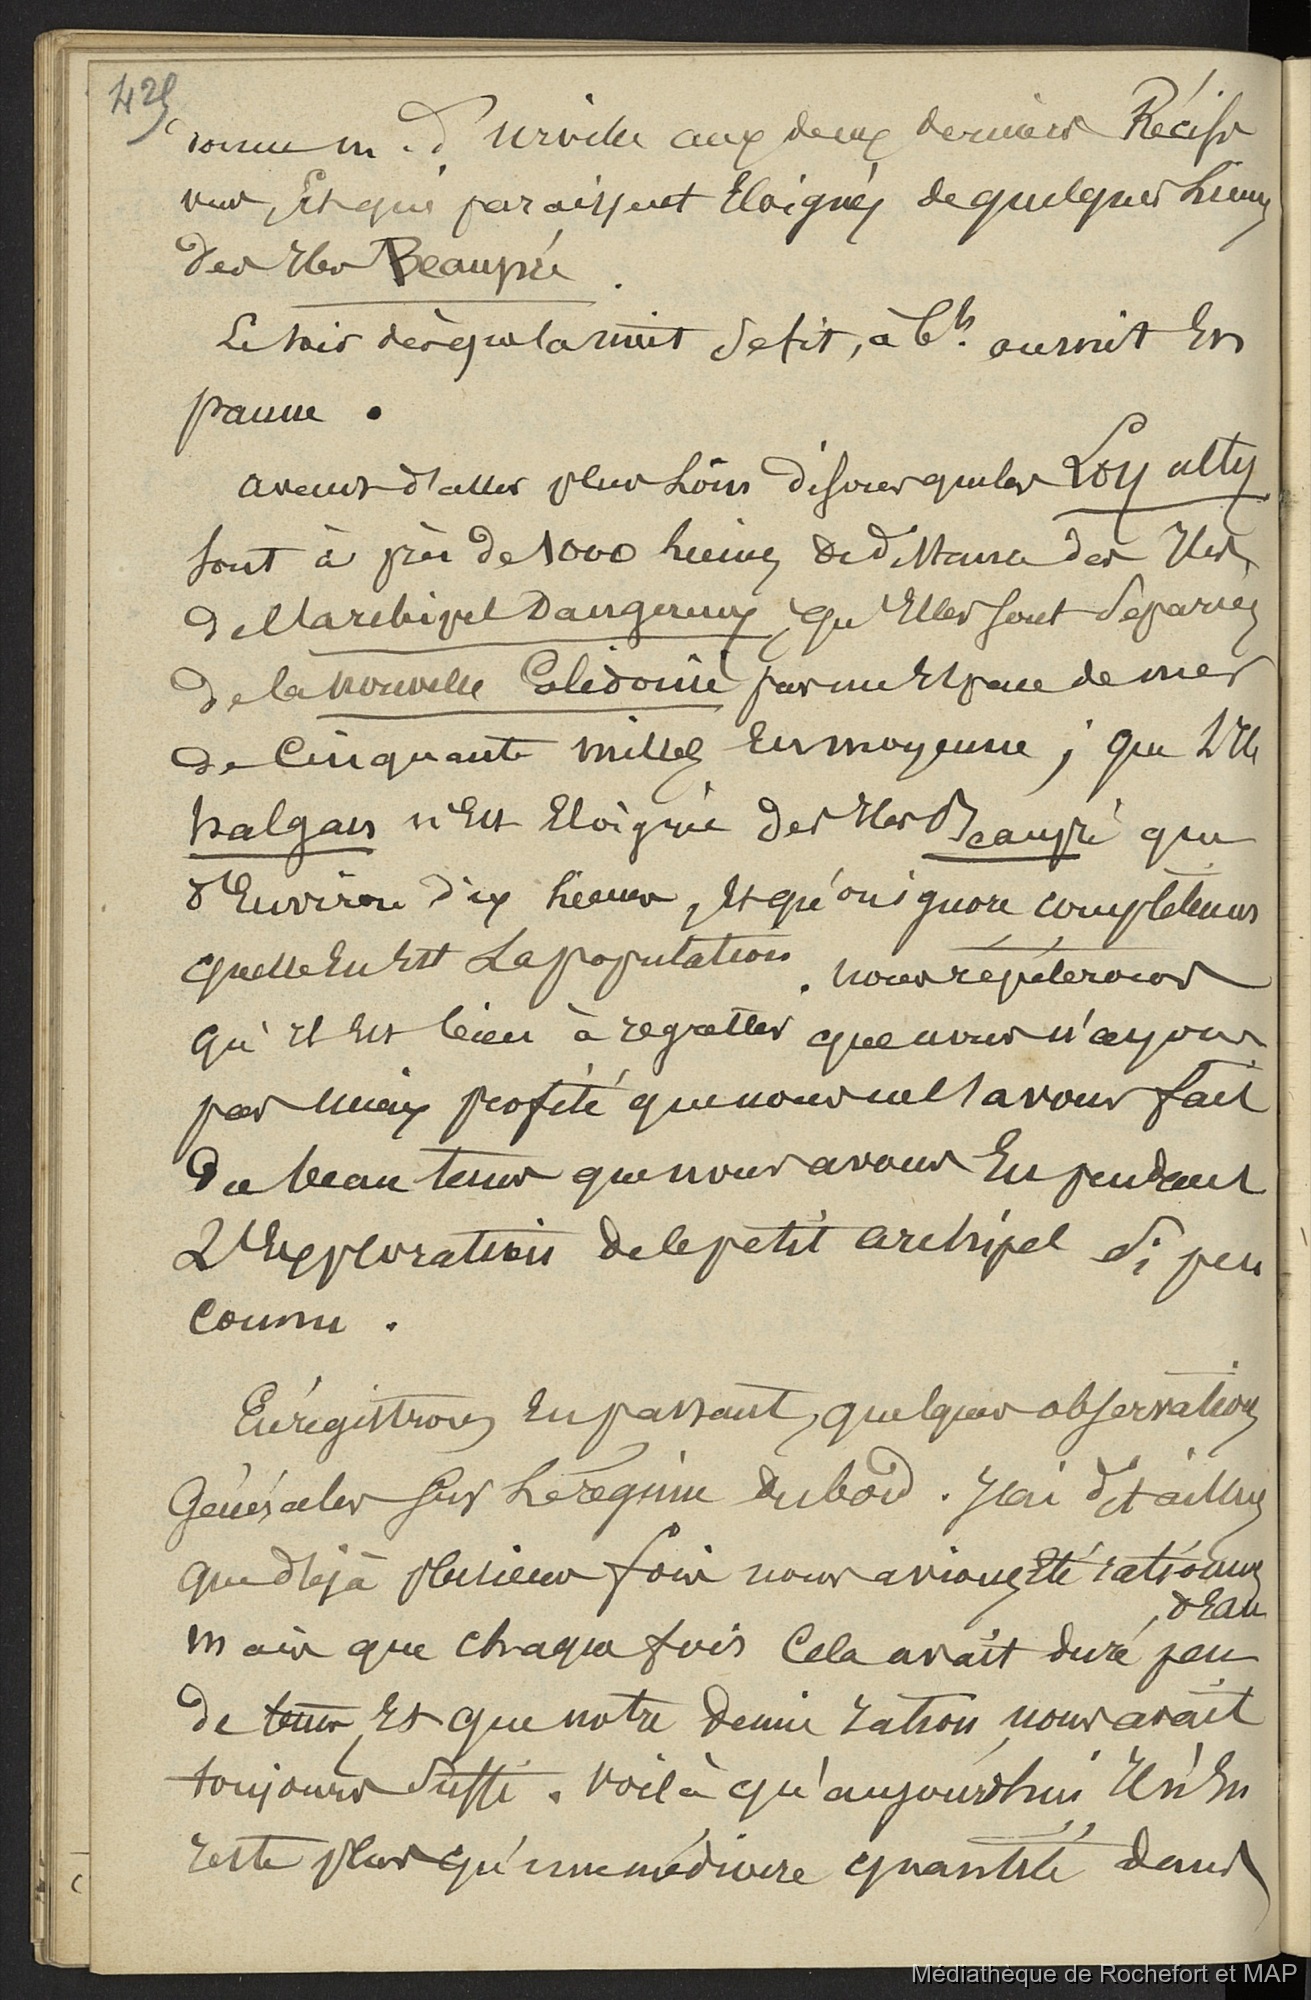 425
m. d'Urville aux deux derniers Récifs
vus, Et qui paraissent Eloignés de quelques lieues
des Iles Beaupré.
Le soir dès que la nuit se fit, à 6h. on mit En
panne.
avant d'aller plus loin disons que les Loyalty
sont à près de 1000 lieues de distance des Iles
de l'archipel Dangereux, qu'Elles sont Séparées
de la nouvelle Calédonie par un Espace de mer
de Cinquante milles En moyenne; que L'Ile
halgan n'Est Eloignée des Iles Beaupré que
d'Environ dix lieues, Et qu'on ignore complètement
quelle En Est La population. nous répèterons
qu'Il Est bien à regretter que nous n'ayons
pas mieux profité que nous ne l'avons fait
du beau tems que nous avons Eu pendant
L'Exploration de ce petit archipel si peu
connu.
Enrégistrons En passant, quelques observations
Générales sur Le régime du bord. J'ai dit ailleurs
que déjà plusieurs fois nous avions Eté rationnés
, d'Eau
mais que chaque fois Cela avait duré peu
de tems, Et que notre demie ration nous avait
toujours suffi. voilà qu'aujourd'hui Il n'En
reste plus qu'une médiocre quantité dans
Médiathèque de Rochefort et MAP